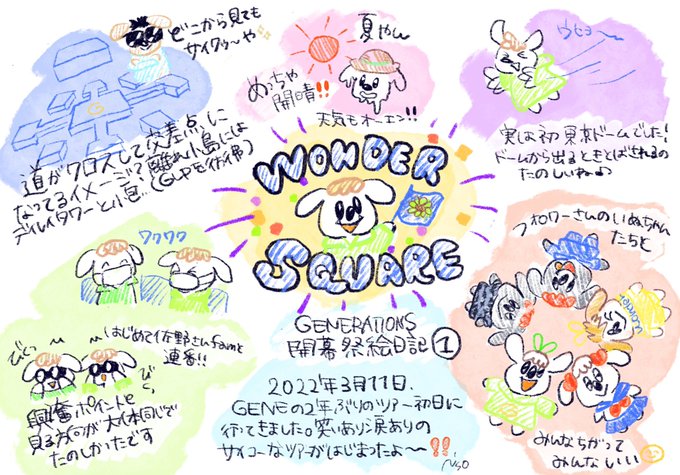 どこから見ても
サイコゥ〜や
道がクロスして交差点に
なってるイメージ？離れ小島には
ディレイタワーと小島‥
(GLPを彷彿)
夏やん
めっちゃ
開晴!!
天気もオーエン!!
ウヒョ〜
実は初東京ドームでした!
ドームから出るときとばされるの
たのしいねょっ
WONDER
SQUARE
GENERATIONS
開幕祭絵日記①
ワクワク
はじめて佐野さんfamと
連番!!
びぐっ
びぐっ
興奮ポイントと
見る方向が大体同じで
たのしかったです
フォロワーさんのいぬちゃん
たちと
みんなちがって
みんないい
2022年3月11日.
GENEの2年ぶりのツアー初日に
行ってきました。笑いあり涙ありの
サイコーなツアーがはじまったよ〜!!